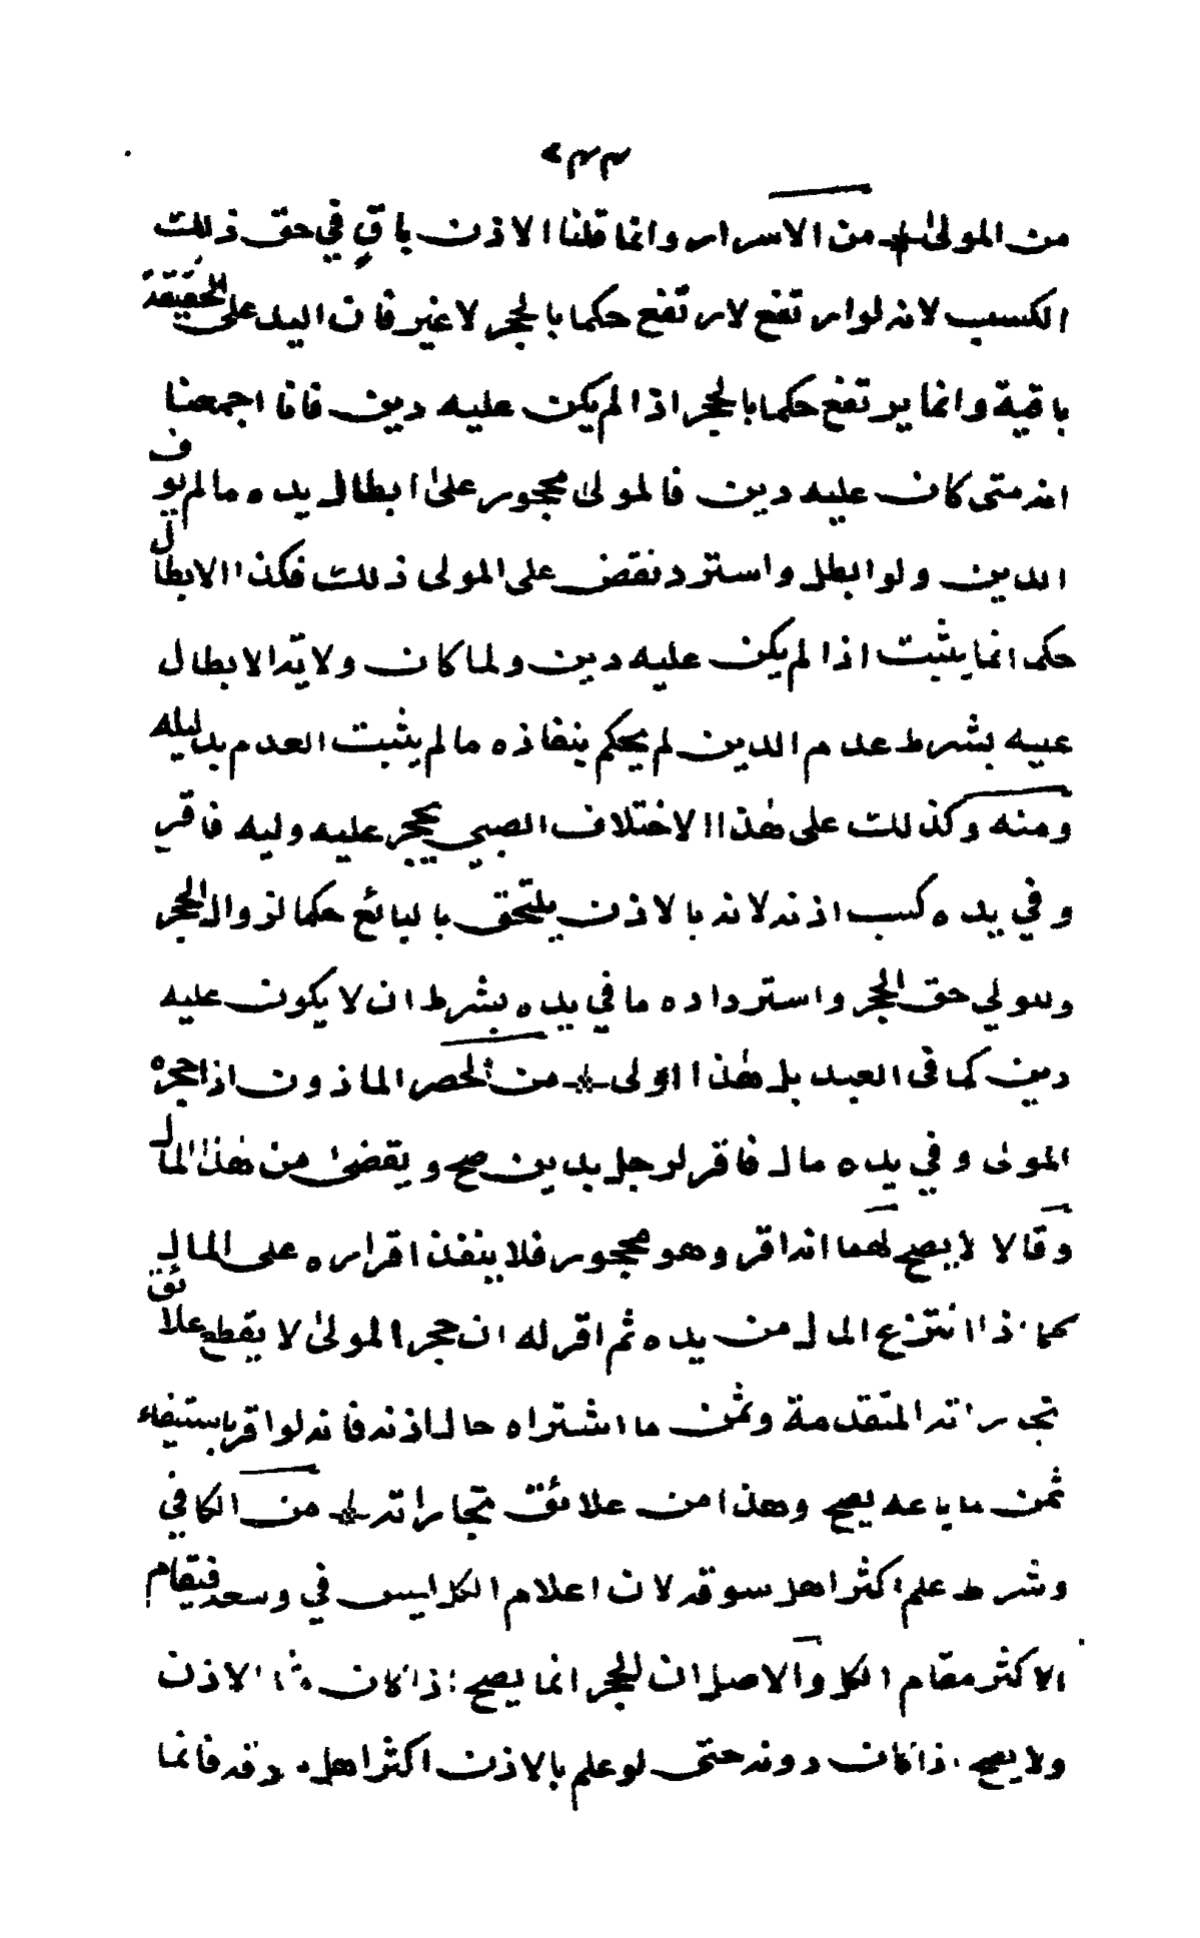 من المولى من الاسرار وانما قلنا الاذن باق في حق ذلك
الكسب لانه لو ارتفع لارتفع حكما بالحجر لا غير فان اليد على الحقيقة
باقية وانما يرتفع حكما بالحجر اذا لم يكن عليه دين فانا اجمعنا
انه متى كان عليه دين فالمولى محجور على ابطال يده ما لم يوف
الدين ولو ابطل واسترد نقض على المولى ذلك فكذا الابطال
حكما انما يثبت اذا لم يكن عليه دين ولما كان ولاية الابطال
عليه بشرط عدم الدين لم يحكم بنفاذه ما لم يثبت العدم بدليله
ومنه وكذلك على هذا الاختلاف الصبي يحجر عليه وليه فاقر
وفي يده كسب اذنه لانه بالاذن يلتحق بالبائع حكما لزوال الحجر
وللولي حق الحجر واسترداده ما في يده بشرط ان لا يكون عليه
دين كما في العبد بل هذا اولى من الحصر الماذون اذا حجره
المولى وفي يده مال فاقر لرجل بدين صح ويقضى من هذا المال
وقالا لا يصح لهما انه اقر وهو محجور فلا ينفذ اقراره على المال
كما اذا انتزع المال من يده ثم اقر له ان حجر المولى لا يقطع علائق
تجاراته المتقدمة وثمن ما اشتراه حال اذنه فانه لو اقر باستيفاء
ثمن ما باعه يصح وهذا من علائق تجاراته من الكافي
وشرط علم اكثر اهل سوقه لان اعلام الكل ليس في وسعه فيقام
الاكثر مقام الكل والاصل ان الحجر انما يصح اذا كان الاذن
ولا يصح اذا كان دونه حتى لو علم بالاذن اكثر اهل سوقه فانما